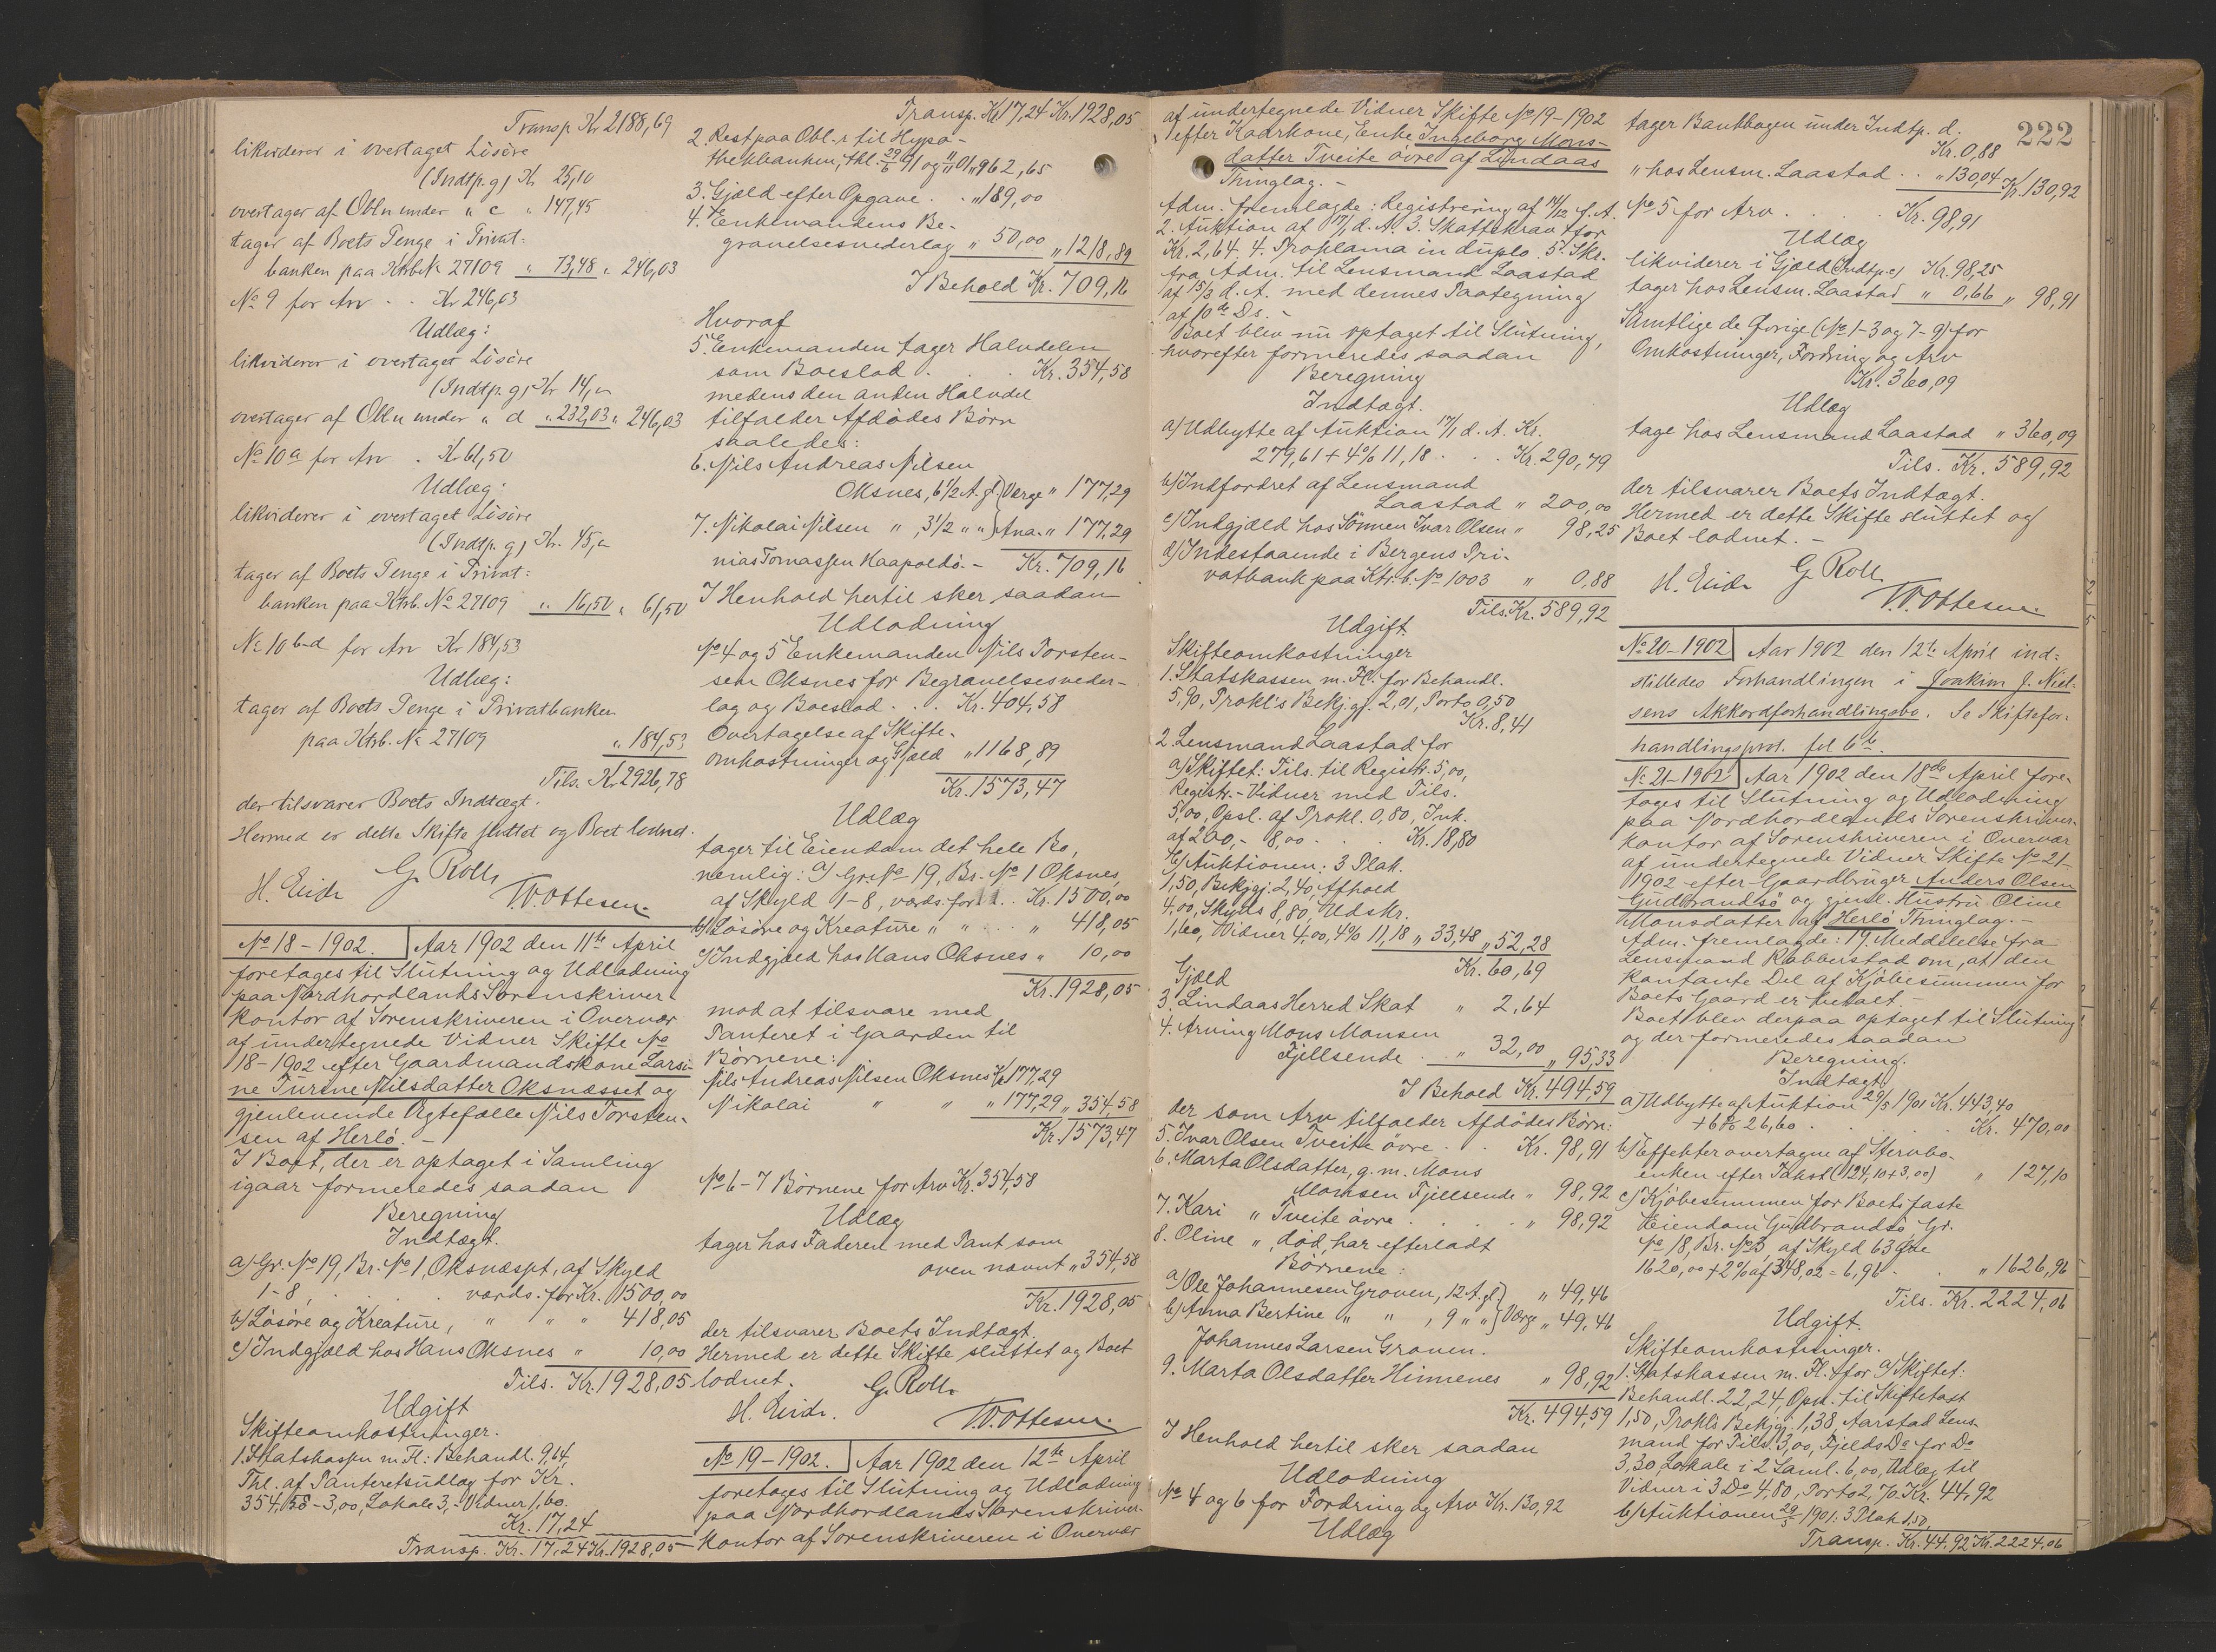 Transp Kr 2188,69
likviderer i overtaget Løsøre
(Indtp. g) Kr 25,10
overtager af Obln under " c " 147,45
tager af Boets Penge i Privat=
banken paa Ktrb No 27109 " 73,48 " 246,03
No 9 for Arv . . Kr 246,03
Udlæg:
likviderer i overtaget Løsøre
(Indtp. g) Kr 14,"
overtager af Obln under " d " 232,03 " 246,03
No 10a for Arv . Kr 61,50
Udlæg:
likviderer i overtaget Løsøre
(Indtp. g) Kr. 45,"
tager af Boets Penge i Privat=
banken paa Ktrb. No 27109 " 16,50 " 61,50
No 10 b-d for Arv Kr 184,53
Udlæg:
tager af Boets Penge i Privatbanken
paa Ktrb. No 27109 " 184,53
Tils. Kr 2926,78
der tilsvarer Boets Indtægt.
Hermed er dette Skifte sluttet og Boet lodnet.
G. Roll
H. Eide W. Ottesen
No 18 - 1902. Aar 1902 den 11te April
foretoges til Slutning og Udlodning
paa Nordhordlands Sorenskriver-
kontor af Sorenskriveren i Overvær
af undertegnede Vidner Skifte No
18-1902 efter Gaardmandskone Larsi-
ne Turine Nilsdatter Oksnæsset og
gjenlevende Ægtefælle Nils Torsten-
sen af Herlø. -
I Boet, der er optaget i Samling
igaar formeredes saadan
Beregning
Indtægt.
a) Gr. No 19, Br. No 1, Oksnæspt, af Skyld
1-8, . . . værds. for Kr. 1500,00
b) Løsøre og Kreature, " " " 418,05
c) Indgjæld hos Hans Oksnes " 10,00
Tils. Kr. 1928,05
Udgift
Skifteomkostninger.
1. Statskassen m. Fl.: Behandl. 9,64,
Thl. af Panteretsudlæg for Kr.
354,58 - 3,00, Lokale 3,- Vidner 1,60.
Kr. 17,24
Transp. Kr. 17,24 Kr. 1928,05
Transp. Kr 17,24 Kr. 1928,05
2. Rest paa Obl-r til Hypo-
thekbanken, thl. 29/6 91 og 11/11 01 " 962,65
3. Gjæld efter Opgave . . " 189,00
4. Enkemandens Be-
gravelsesvederlag " 50,00 " 1218,89
I Behold Kr. 709,16
Hvoraf
5. Enkemanden tager Halvdelen
som Boeslod . . . Kr. 354,58
medens den anden Halvdel
tilfalder Afdødes Børn
saaledes:
6. Nils Andreas Nilsen
Oksnes, 6 1/2 A. gl. Værge " 177,29
7. Nikolai Nilsen " , 3 1/2 " " Ana- " 177,29
nias Tomassen Kaapoldø. - Kr. 709,16
I Henhold hertil sker saadan
Udlodning
No 4 og 5 Enkemanden Nils Torsten-
sen Oksnes for Begravelsesveder-
lag og Boeslod . . . Kr. 404,58
Overtagelse af Skifte-
omkostninger og Gjæld " 1168,89
Kr. 1573,47
Udlæg
tager til Eiendom det hele Bo,
nemlig: a) Gr. No 19, Br. No 1 Oksnes,
af Skyld 1-8, værds. for . . Kr. 1500,00
b) Løsøre og Kreature " " . . " 418,05
c) Indgjæld hos Hans Oksnes " 10,00
Kr. 1928,05
mod at tilsvare med
Panteret i Gaarden til
Børnene:
Nils Andreas Nilsen Oksnes Kr 177,29
Nikolai " " " 177,29 " 354,58
Kr. 1573,47
No 6-7 Børnene for Arv Kr. 354,58
Udlæg
tager hos Faderen med Pant som
oven nævnt " 354,58
Kr. 1928,05
der tilsvarer Boets Indtægt.
Hermed er dette Skifte sluttet og Boet
lodnet. G. Roll.
H. Eide. W. Ottesen.
No 19 - 1902. Aar 1902 den 12te April
foretoges til Slutning og Udlodning
paa Nordhordlands Sorenskriver-
kontor af Sorenskriveren i Overvær
af undertegnede Vidner Skifte No 19-1902
efter Kaarkone, Enke Ingeborg Mons-
datter Tveite øvre af Lindaas
Thinglag. -
Adm. fremlagde: 1. Registrering af 14/12 f. A.
2. Auktion af 17/1 d. A. 3. Skattekrav for
Kr. 2,64. 4. Proklama in duplo. 5. Skr.
fra Adm. til Lensmand Laastad
af 15/3 d. A. med dennes Paategning
af 10de Ds. -
Boet blev nu optaget til Slutning,
hvorefter formeredes saadan
Beregning
Indtægt.
a) Udbytte af Auktion 17/1 d. A. Kr.
279,61 + 4% 11,18 . . . Kr. 290,79
b) Indfordret af Lensmand
Laastad " 200,00
c) Indgjæld hos Sønnen Ivar Olsen " 98,25
d) Indestaaende i Bergens Pri-
vatbank paa Ktr. b. No 1003 " 0,88
Tils. Kr. 589,92
Udgift.
Skifteomkostninger
1. Statskassen m. Fl. for Behandl.
5,90, Prokl's Bekj.gj. 2,01, Porto 0,50
Kr. 8,41
2. Lensmand Laastad for
a) Skiftet: Tils. til Registr. 5,00,
Registr.-Vidner med Tils.
5,00, Opsl. af Prokl. 0,80, Ink.
af 200,- 8,00 . . . Kr. 18,80
b) Auktionen: 3 Plak.
1,50, Bekjgj. 2,40, Afhold
4,00, Skyds 8,80, Udskr.
1,60, Vidner 4,00, 4% 11,18 " 33,48 " 52,28
Kr. 60,69
Gjæld
3. Lindaas Herred Skat " 2,64
4. Arving Mons Monsen
Fjellsende . . " 32,00 " 95,33
I Behold Kr. 494,59
der som Arv tilfalder Afdødes Børn:
5. Ivar Olsen Tveite øvre . . Kr. 98,91
6. Marta Olsdatter, g. m. Mons
Monsen Fjellsende " 98,92
7. Kari " Tveite øvre . . . " 98,92
8. Oline " , død, har efterladt
Børnene:
a) Ole Johannesen Groven, 12 A. gl. " 49,46
b) Anna Bertine " " , 9 " " Værge " 49,46
Johannes Larsen Groven.
9. Marta Olsdatter Hinnenes " 98,92
Kr. 494,59
I Henhold hertil sker saadan
Udlodning
No 4 og 6 for Fordring og Arv Kr. 130,92
Udlæg
222
tager Bankbogen under Indtp. d.
Kr. 0,88
" hos Lensm. Laastad . . " 130,04 Kr. 130,92
No 5 for Arv . . . . Kr. 98,91
Udlæg
likviderer i Gjæld (Indtp. c) Kr. 98,25
tager hos Lensm. Laastad " 0,66 " 98,91
Samtlige de Øvrige (No 1-3 og 7-9) for
Omkostninger, Fordring og Arv
Kr. 360,09
Udlæg
tage hos Lensmand Laastad " 360,09
Tils. Kr. 589,92
der tilsvarer Boets Indtægt.
Hermed er dette Skifte sluttet og
Boet lodnet. -
G. Roll
H. Eide W. Ottesen.
No 20-1902 Aar 1902 den 12te April ind=
stilledes Forhandlingen i Joakim J. Niel-
sens Akkordforhandlingsbo. Se Skiftefor-
handlingsprot. fol 6te.
No 21-1902 Aar 1902 den 18de April fore-
toges til Slutning og Udlodning
paa Nordhordlands Sorenskriver-
kontor af Sorenskriveren i Overvær
af undertegnede Vidner Skifte No 21-
1902 efter Gaardbruger Anders Olsen
Gudbrandsø og gjenl. Hustru Oline
Monsdatter af Herlø Thinglag. -
Adm. fremlagde: 19. Meddelelse fra
Lensmand Rabberstad om, at den
kontante Del af Kjøbesummen for
Boets Gaard er betalt. -
Boet blev derpaa optaget til Slutning
og der formeredes saadan
Beregning.
Indtægt
a) Udbytte af Auktion 29/5 1901 Kr. 443,40
+ 6% 26,60 . . . Kr. 470,00
b) Effekter overtagne af Stervbo-
enken efter Takst (124,10 + 3,00) " 127,10
c) Kjøbesummen for Boets faste
Eiendom Gudbrandsø Gr.
No 18, Br. No 3, af Skyld 63 Øre
1620,00 + 2% af 348,02 = 6,96 . . " 1626,96
Tils. Kr. 2224,06
Udgift.
Skifteomkostninger.
1. Statskassen m. Fl. for a) Skiftet:
Behandl. 22,24, Opn. til Skiftetakst
1,50, Prokl's Bekjgj. 1,38, Aarstad Lens-
mand for Tils. 3,00, Fjelds Do for Do
3,30, Lokale i 2 Saml. 6,00, Udlæg til
Vidner i 3 Do 4,80, Porto 2,70. Kr. 44,92
b) Auktionen 29/5 1901: 3 Plak 1,50,
Transp. Kr. 44,92 Kr. 2224,06